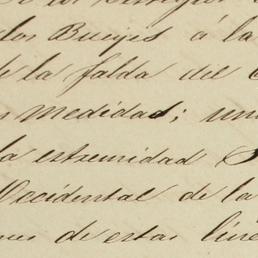 los Bueyes á la
de la falda del
medidas; un
la estremidad S
Occidental de la
de estas line